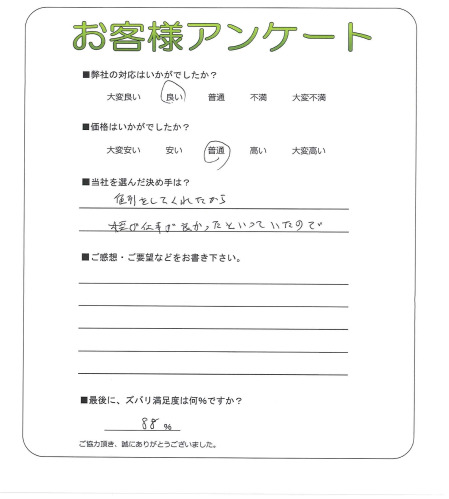 お客様アンケート
■弊社の対応はいかがでしたか？
大変良い 良い 普通 不満 大変不満
■価格はいかがでしたか？
大変安い 安い 普通 高い 大変高い
■当社を選んだ決め手は？
値引をしてくれたから
仕事が良かったといっていたので
■ご感想・ご要望などをお書き下さい。
■最後に、ズバリ満足度は何%ですか？
88 %
ご協力頂き、誠にありがとうございました。